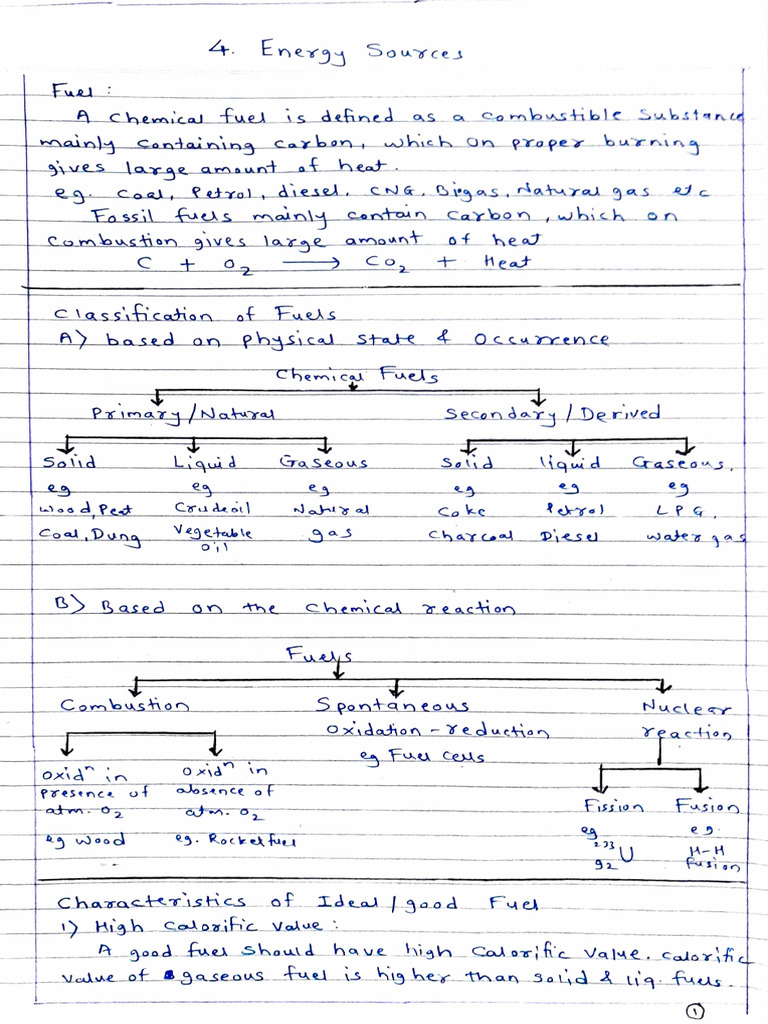 4. Energy Sources
Fuel :
A chemical fuel is defined as a combustible substance
mainly containing carbon, which on proper burning
gives large amount of heat.
eg. Coal, Petrol, diesel, CNG, Biogas, Natural gas etc
Fossil fuels mainly contain carbon, which on
combustion gives large amount of heat
C + O₂ ⟶ CO₂ + Heat
Classification of Fuels
A) based on physical state & occurrence
Chemical Fuels
Primary/Natural Secondary/Derived
Solid Liquid Gaseous Solid liquid Gaseous.
eg eg eg eg eg eg
Wood, Peat Crude oil Natural Coke Petrol LPG,
Coal, Dung Vegetable gas Charcoal Diesel water gas
oil
B) Based on the chemical reaction
Fuels
Combustion Spontaneous Nuclear
Oxidation - reduction reaction
eg Fuel cells
oxidⁿ in oxidⁿ in
presence of absence of
atm. O₂ atm. O₂ Fission Fusion
eg wood eg. Rocket fuel eg e.g.
²³³₉₂U H-H
fusion
Characteristics of Ideal/good Fuel
1) High Calorific Value :
A good fuel should have high calorific value. calorific
value of gaseous fuel is higher than solid & liq. fuels.
1